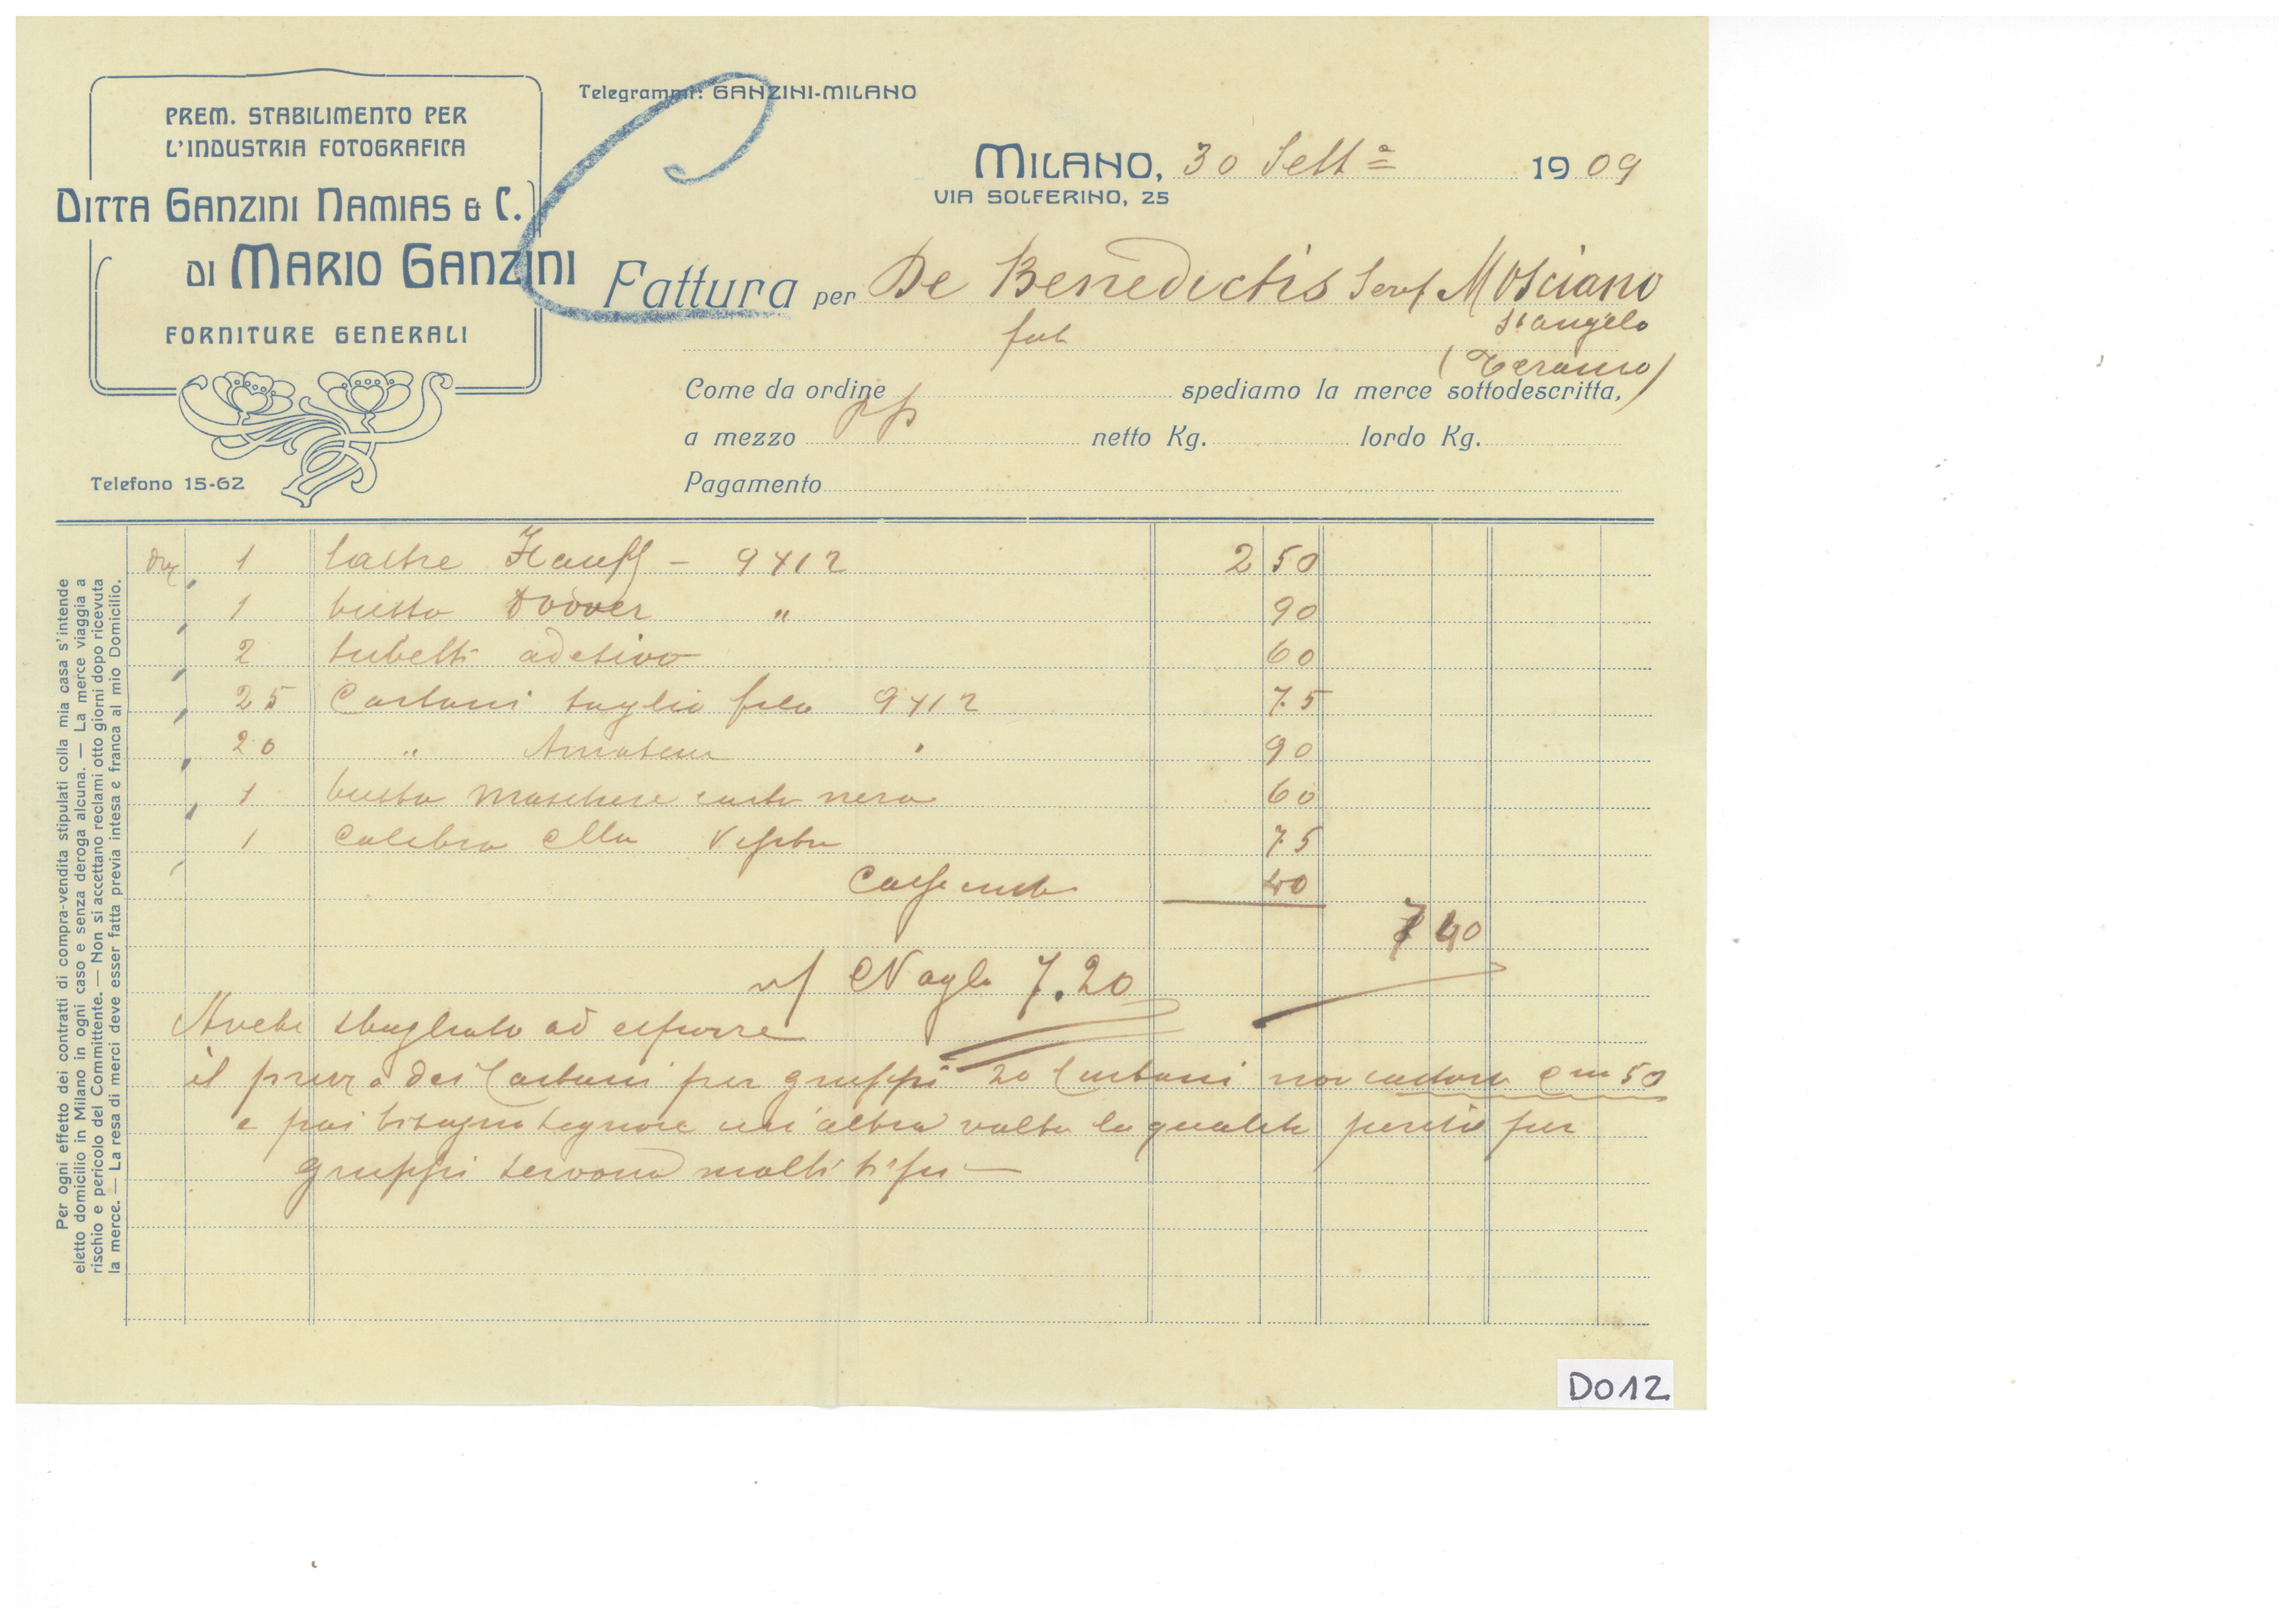 Telegrammi: GANZINI-MILANO
PREM. STABILIMENTO PER
L'INDUSTRIA FOTOGRAFICA
DITTA GANZINI NAMIAS & C.
DI MARIO GANZINI
FORNITURE GENERALI
Telefono 15-62
MILANO, 30 Sett.e 1909
VIA SOLFERINO, 25
Fattura per De Benedictis Mosciano
St angelo
fot
(Teramo)
Come da ordine spediamo la merce sottodescritta,
a mezzo pp netto Kg. lordo Kg.
Pagamento
Per ogni effetto dei contratti di compra-vendita stipulati colla mia casa s'intende
eletto domicilio in Milano in ogni caso e senza deroga alcuna. — La merce viaggia a
rischio e pericolo del Committente. — Non si accettano reclami otto giorni dopo ricevuta
la merce. — La resa di merci deve esser fatta previa intesa e franca al mio Domicilio.
Dz 1 lastre Hauff - 9x12 2 50
1 busta " 90
2 tubetti adesivo 60
25 Cartoni taglio 9x12 75
20 " Amateur " 90
1 busta maschere carta nera 60
1 75
40
7 40
Vaglia 7.20
Avete sbagliato ad esporre
il prezzo dei Cartoni per gruppi 20 Cartoni non costano 50
e poi bisogna un'altra volta la qualità perchè per
gruppi servono molti tipi —
D012